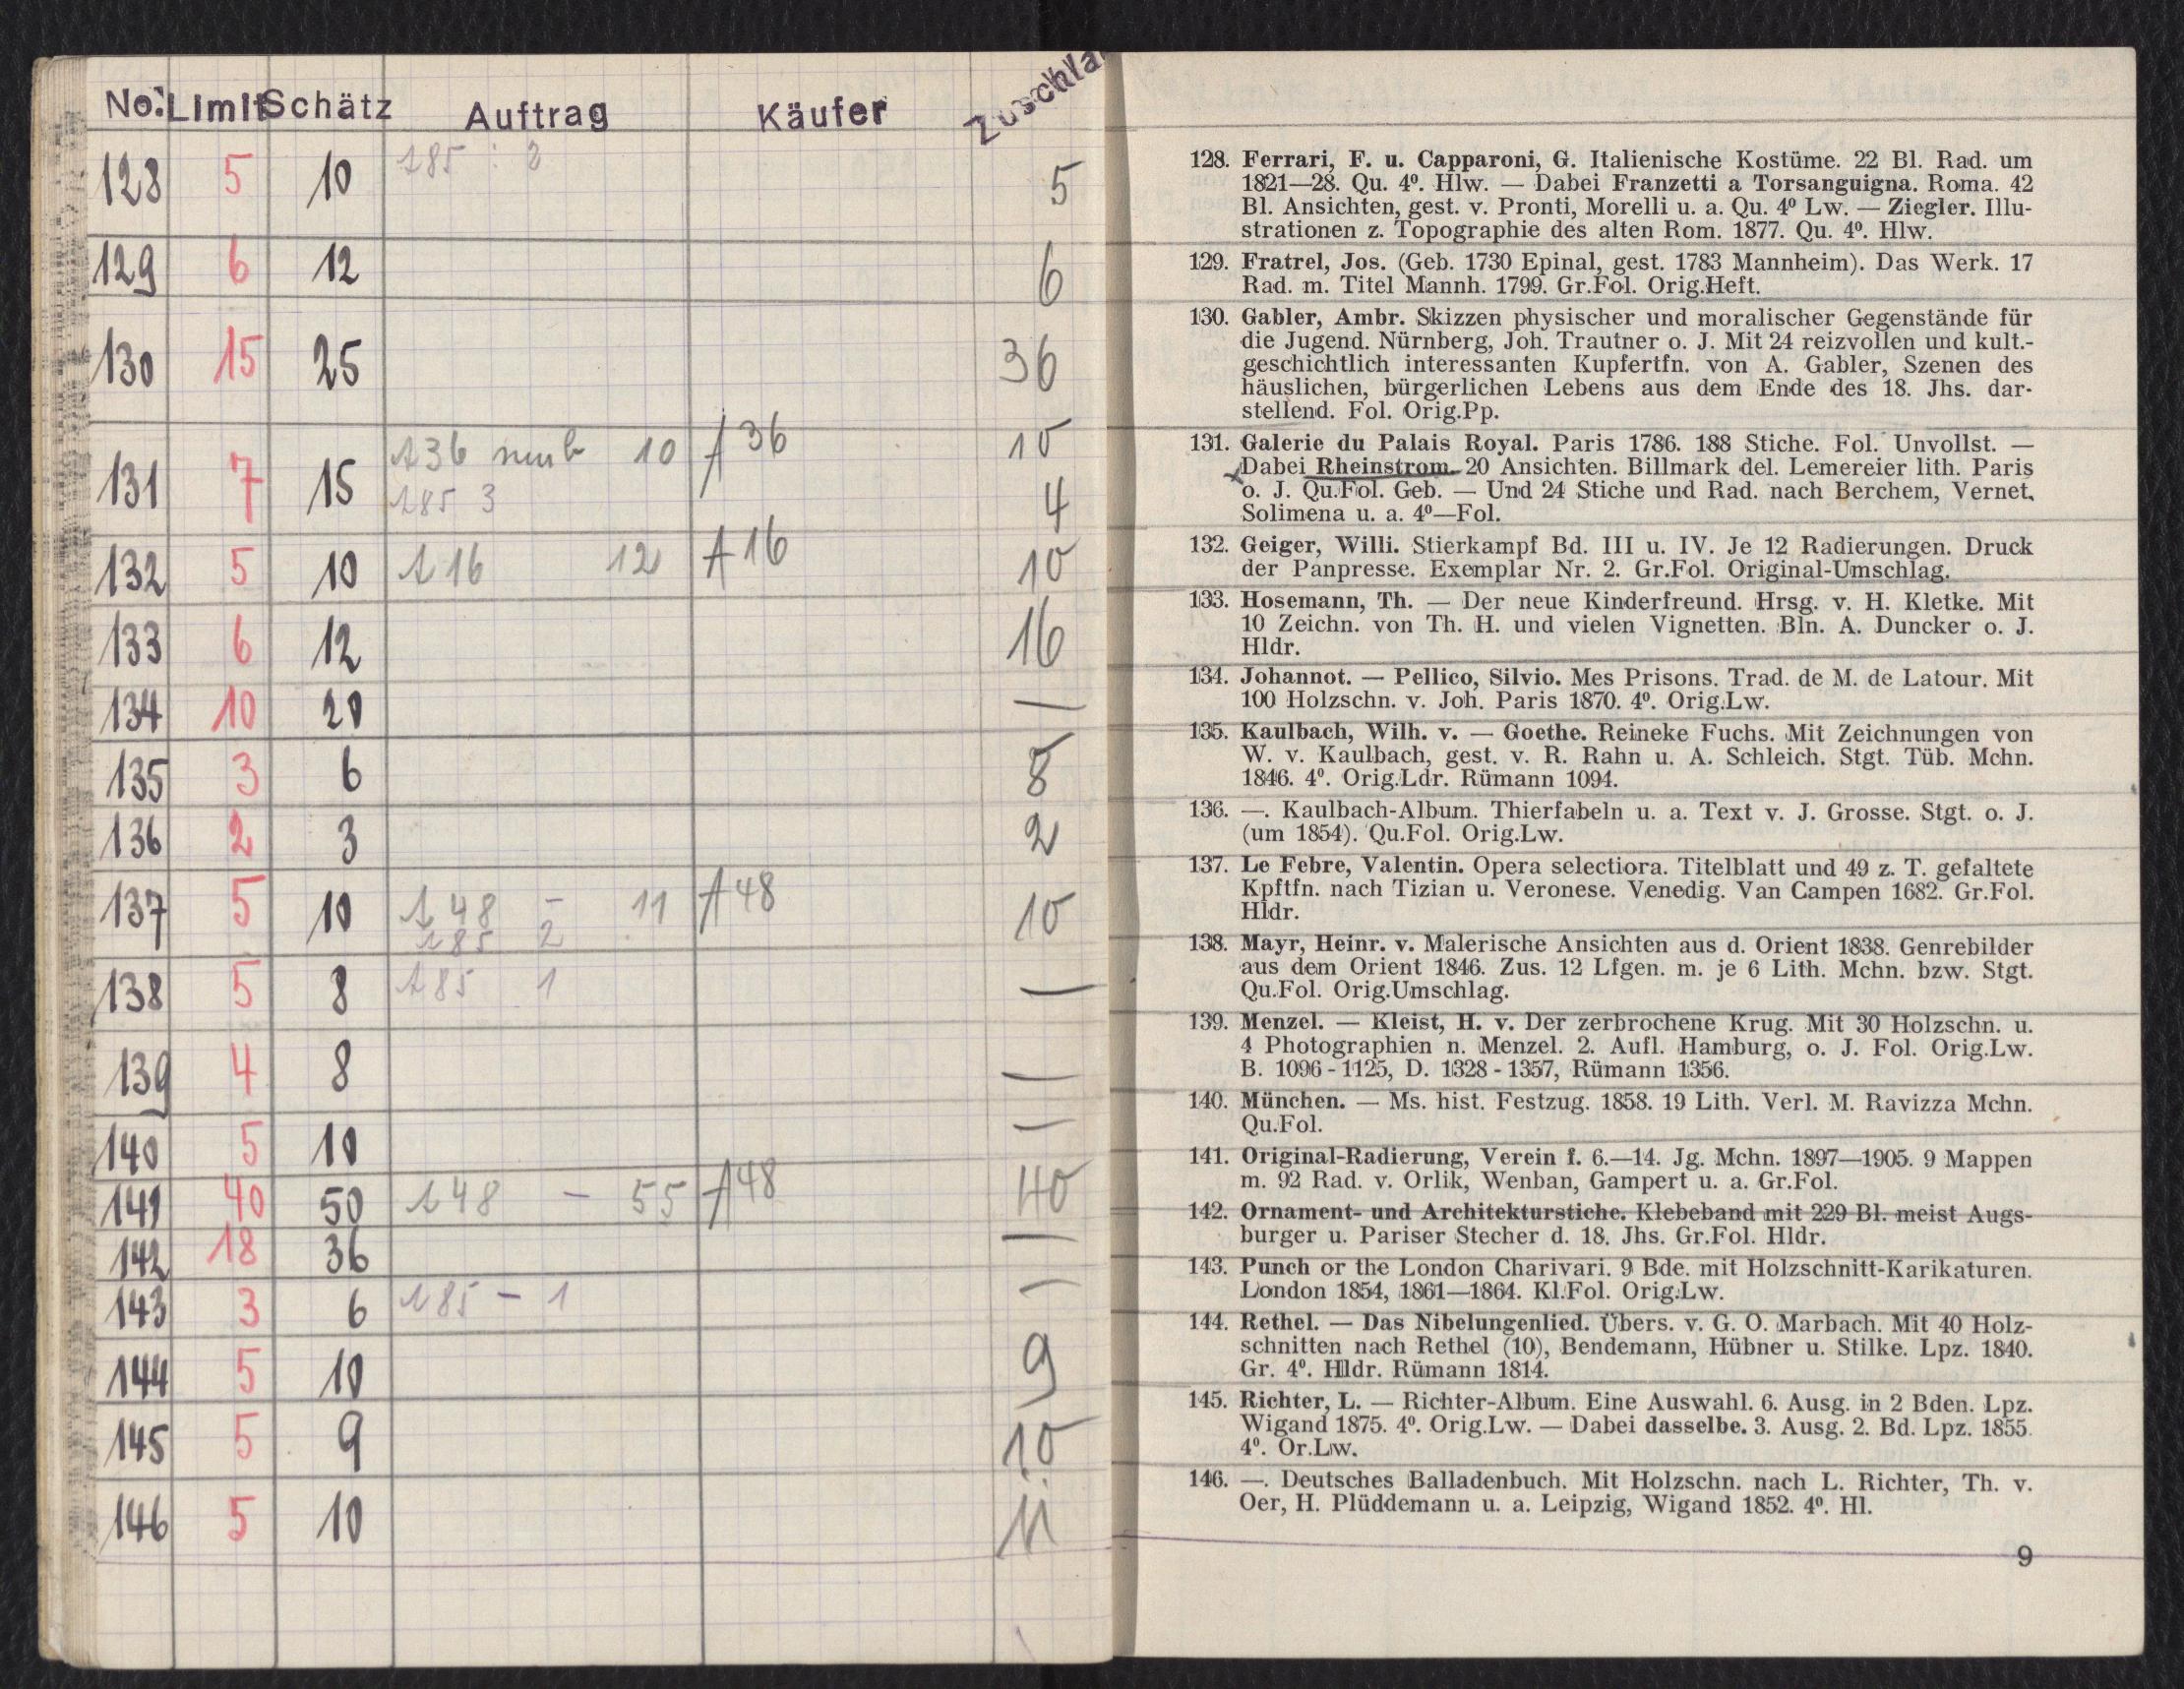 No. Limit Schätz Auftrag Käufer Zuschla
128 5 10 A85 : 2 5
129 6 12 6
130 15 25 36
131 7 15 A36 10 A36 10
A85 3 4
132 5 10 A16 12 A16 10
133 6 12 16
134 10 20 —
135 3 6 8
136 2 3 2
137 5 10 A48 – 11 A48 10
A85 2
138 5 8 A85 1 —
139 4 8 —
140 5 10 —
141 40 50 A48 – 55 A48 40
142 18 36 —
143 3 6 A85 – 1 —
144 5 10 9
145 5 9 10
146 5 10 11
128. Ferrari, F. u. Capparoni, G. Italienische Kostüme. 22 Bl. Rad. um
1821—28. Qu. 4⁰. Hlw. — Dabei Franzetti a Torsanguigna. Roma. 42
Bl. Ansichten, gest. v. Pronti, Morelli u. a. Qu. 4⁰ Lw. — Ziegler. Illu-
strationen z. Topographie des alten Rom. 1877. Qu. 4⁰. Hlw.
129. Fratrel, Jos. (Geb. 1730 Epinal, gest. 1783 Mannheim). Das Werk. 17
Rad. m. Titel Mannh. 1799. Gr.Fol. Orig.Heft.
130. Gabler, Ambr. Skizzen physischer und moralischer Gegenstände für
die Jugend. Nürnberg, Joh. Trautner o. J. Mit 24 reizvollen und kult.-
geschichtlich interessanten Kupfertfn. von A. Gabler, Szenen des
häuslichen, bürgerlichen Lebens aus dem Ende des 18. Jhs. dar-
stellend. Fol. Orig.Pp.
131. Galerie du Palais Royal. Paris 1786. 188 Stiche. Fol. Unvollst. —
Dabei Rheinstrom. 20 Ansichten. Billmark del. Lemereier lith. Paris
o. J. Qu.Fol. Geb. — Und 24 Stiche und Rad. nach Berchem, Vernet,
Solimena u. a. 4⁰—Fol.
132. Geiger, Willi. Stierkampf Bd. III u. IV. Je 12 Radierungen. Druck
der Panpresse. Exemplar Nr. 2. Gr.Fol. Original-Umschlag.
133. Hosemann, Th. — Der neue Kinderfreund. Hrsg. v. H. Kletke. Mit
10 Zeichn. von Th. H. und vielen Vignetten. Bln. A. Duncker o. J.
Hldr.
134. Johannot. — Pellico, Silvio. Mes Prisons. Trad. de M. de Latour. Mit
100 Holzschn. v. Joh. Paris 1870. 4⁰. Orig.Lw.
135. Kaulbach, Wilh. v. — Goethe. Reineke Fuchs. Mit Zeichnungen von
W. v. Kaulbach, gest. v. R. Rahn u. A. Schleich. Stgt. Tüb. Mchn.
1846. 4⁰. Orig.Ldr. Rümann 1094.
136. —. Kaulbach-Album. Thierfabeln u. a. Text v. J. Grosse. Stgt. o. J.
(um 1854). Qu.Fol. Orig.Lw.
137. Le Febre, Valentin. Opera selectiora. Titelblatt und 49 z. T. gefaltete
Kpftfn. nach Tizian u. Veronese. Venedig. Van Campen 1682. Gr.Fol.
Hldr.
138. Mayr, Heinr. v. Malerische Ansichten aus d. Orient 1838. Genrebilder
aus dem Orient 1846. Zus. 12 Lfgen. m. je 6 Lith. Mchn. bzw. Stgt.
Qu.Fol. Orig.Umschlag.
139. Menzel. — Kleist, H. v. Der zerbrochene Krug. Mit 30 Holzschn. u.
4 Photographien n. Menzel. 2. Aufl. Hamburg, o. J. Fol. Orig.Lw.
B. 1096 - 1125, D. 1328 - 1357, Rümann 1356.
140. München. — Ms. hist. Festzug. 1858. 19 Lith. Verl. M. Ravizza Mchn.
Qu.Fol.
141. Original-Radierung, Verein f. 6.—14. Jg. Mchn. 1897—1905. 9 Mappen
m. 92 Rad. v. Orlik, Wenban, Gampert u. a. Gr.Fol.
142. Ornament- und Architekturstiche. Klebeband mit 229 Bl. meist Augs-
burger u. Pariser Stecher d. 18. Jhs. Gr.Fol. Hldr.
143. Punch or the London Charivari. 9 Bde. mit Holzschnitt-Karikaturen.
London 1854, 1861—1864. Kl.Fol. Orig.Lw.
144. Rethel. — Das Nibelungenlied. Übers. v. G. O. Marbach. Mit 40 Holz-
schnitten nach Rethel (10), Bendemann, Hübner u. Stilke. Lpz. 1840.
Gr. 4⁰. Hldr. Rümann 1814.
145. Richter, L. — Richter-Album. Eine Auswahl. 6. Ausg. in 2 Bden. Lpz.
Wigand 1875. 4⁰. Orig.Lw. — Dabei dasselbe. 3. Ausg. 2. Bd. Lpz. 1855.
4⁰. Or.Lw.
146. —. Deutsches Balladenbuch. Mit Holzschn. nach L. Richter, Th. v.
Oer, H. Plüddemann u. a. Leipzig, Wigand 1852. 4⁰. Hl.
9